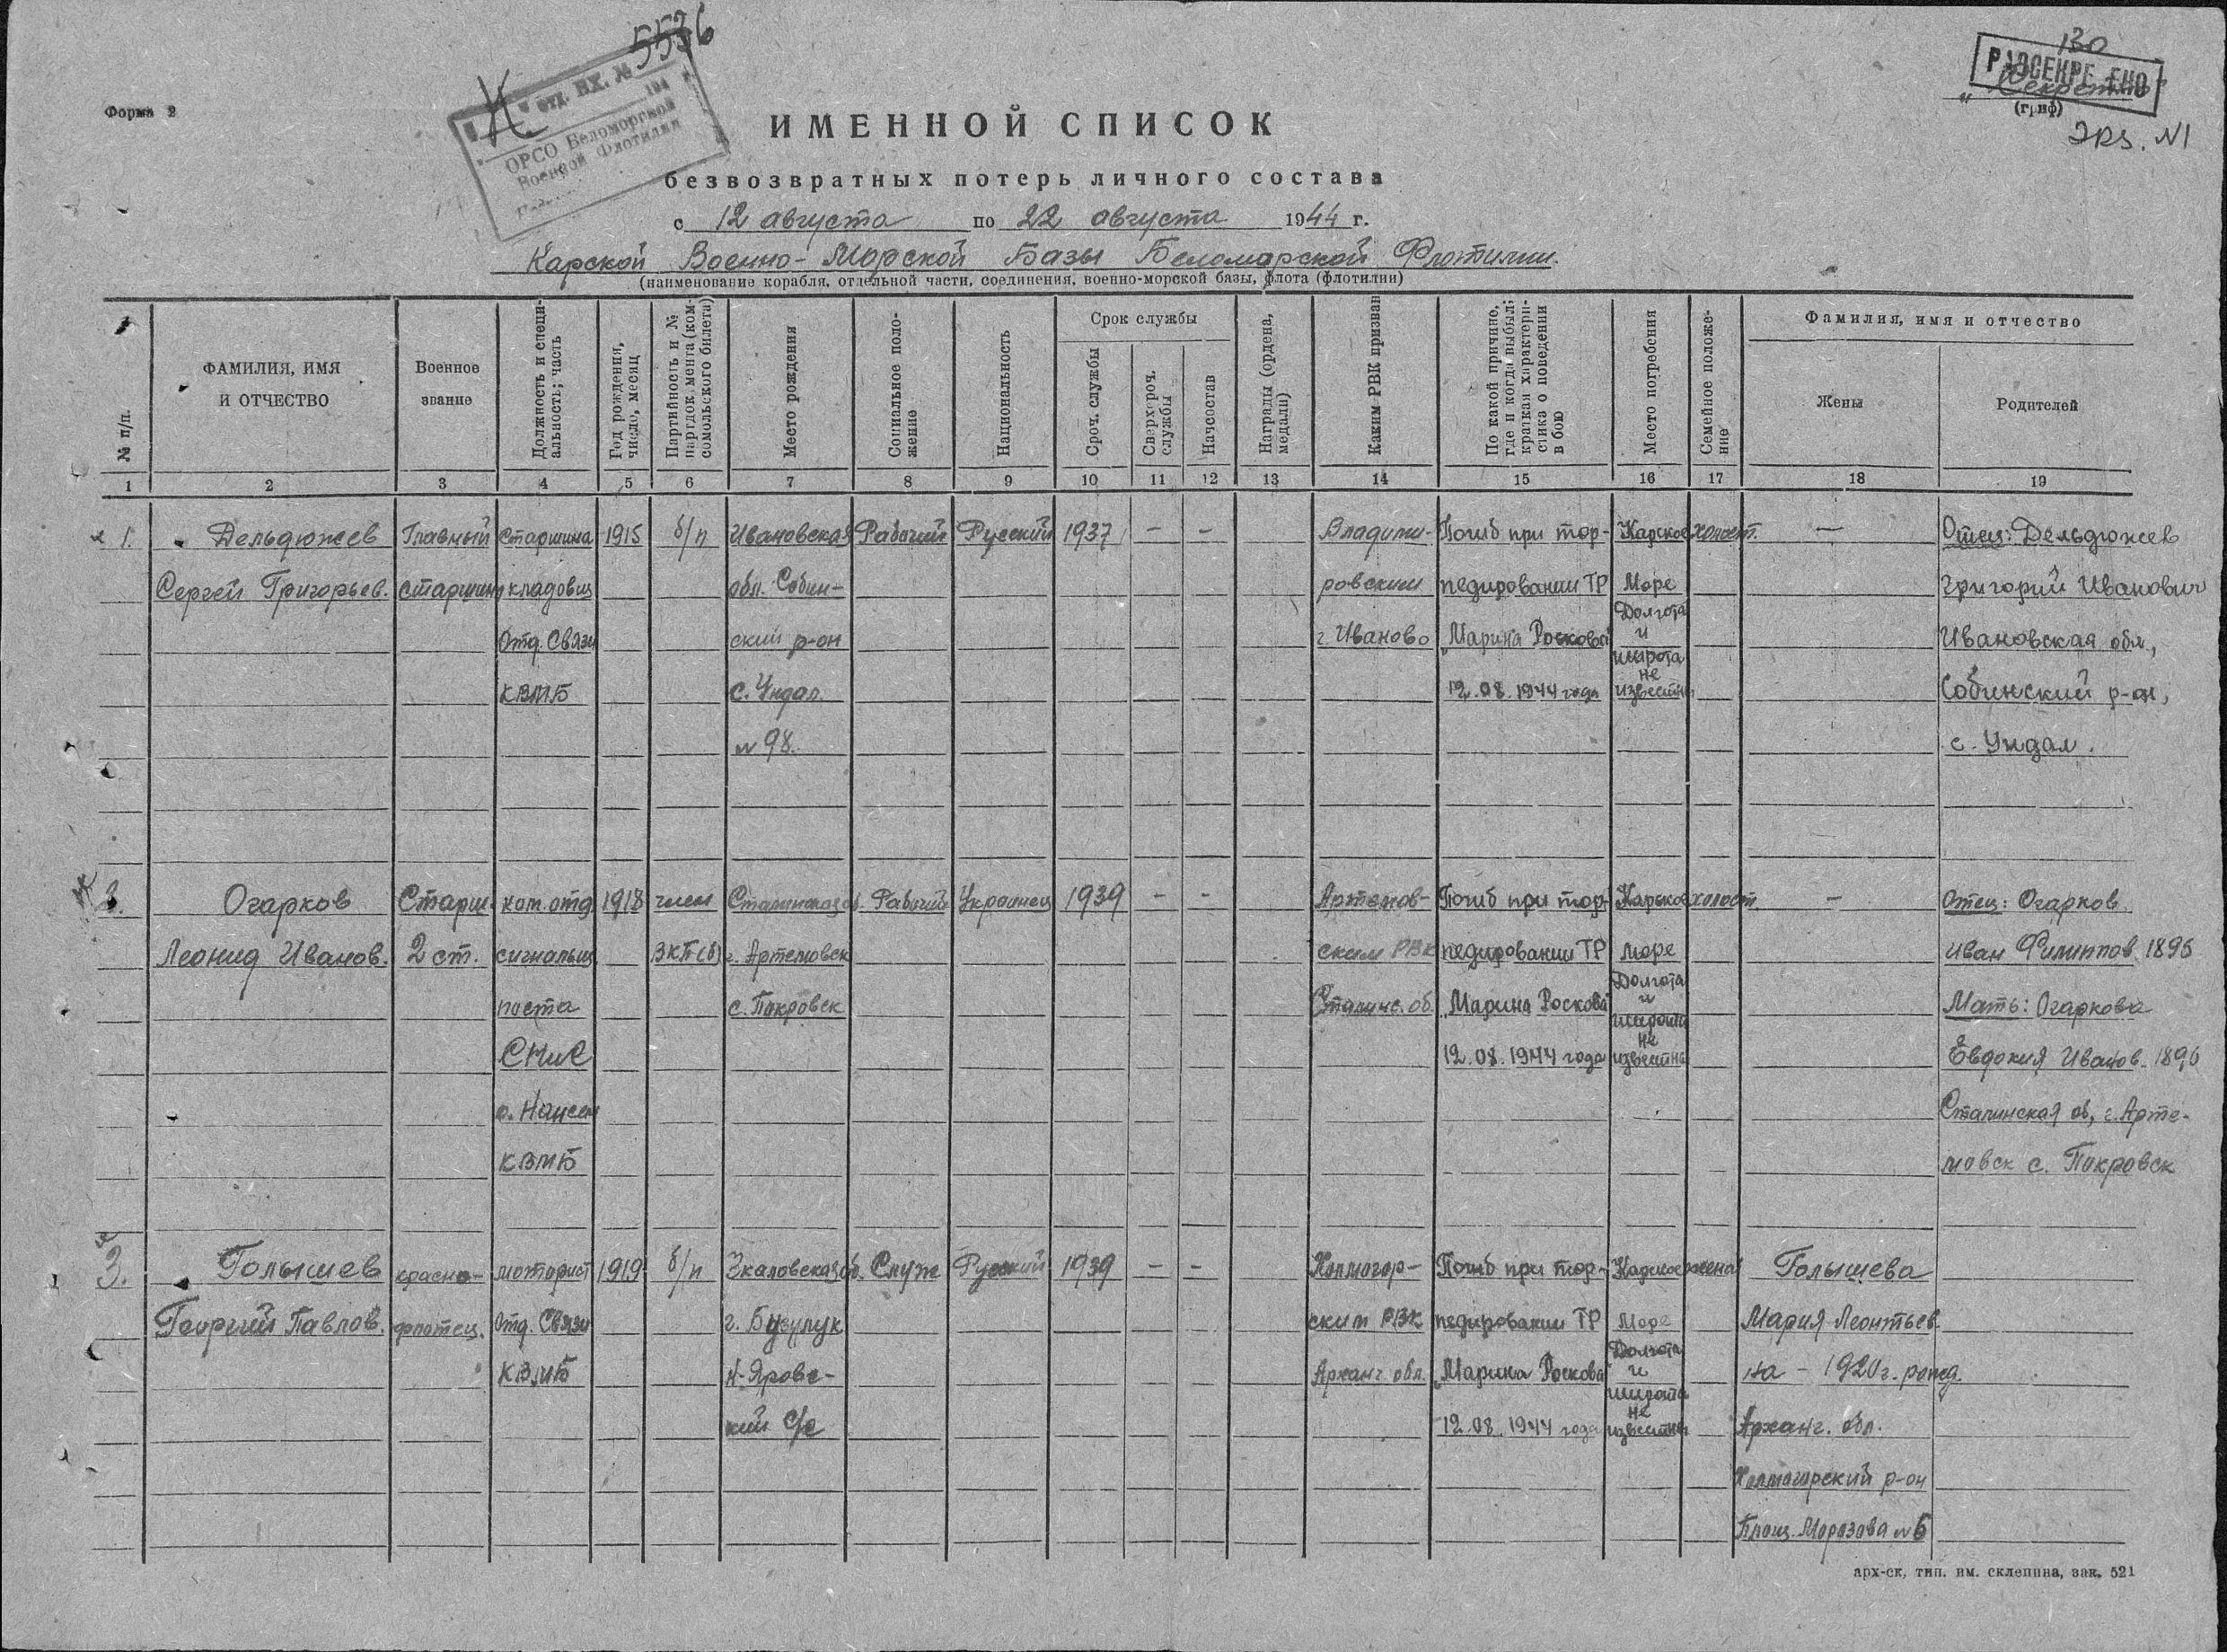 5536
отд. вх. №
194
ОРСО Беломорской
Военной Флотилии
130
РАССЕКРЕЧЕНО
„Секретно"
(гриф)
Экз. №1
Форма 2
ИМЕННОЙ СПИСОК
безвозвратных потерь личного состава
с 12 августа по 22 августа 1944 г.
Карской Военно-Морской Базы Беломорской Флотилии.
(наименование корабля, отдельной части, соединения, военно-морской базы, флота (флотилии)
№ п/п.
ФАМИЛИЯ, ИМЯ
И ОТЧЕСТВО
Военное
звание
Должность и специ-
альность; часть
Год рождения,
число, месяц
Партийность и №
партдокумента (ком-
сомольского билета)
Место рождения
Социальное поло-
жение
Национальность
Срок службы
Сроч. службы
Сверхсроч.
службы
Начсостав
Награды (ордена,
медали)
Каким РВК призван
По какой причине,
где и когда выбыл;
краткая характери-
стика о поведении
в бою
Место погребения
Семейное положе-
ние
Фамилия, имя и отчество
Жены
Родителей
1 2 3 4 5 6 7 8 9 10 11 12 13 14 15 16 17 18 19
1. Дельдюжев Главный старшина 1915 б/п Ивановская Рабочий Русский 1937 - - Владими- Погиб при тор- Карское холост. — Отец: Дельдюжев
Сергей Григорьев. старшина кладовщ обл. Собин- ровским педировании ТР Море Григорий Иванович
Отд. Связи ский р-он г. Иваново „Марина Роскова" Долгота и широта Ивановская обл.,
КВМБ с. Ундол. 12.08.1944 года не известны Собинский р-он,
№ 98. с. Ундол.
2. Огарков Старш. ком. отд. 1918 член Сталинская об. Рабочий Украинец 1939 - - Артемов- Погиб при тор- Карское холост. — Отец: Огарков
Леонид Иванов. 2 ст. сигнальщ ВКП(б) г. Артемовск ским РВК педировании ТР Море Иван Филиппов. 1896
поста с. Покровск Сталинс. об. „Марина Роскова" Долгота и широта Мать: Огаркова
СНиС 12.08.1944 года не известны Евдокия Иванов. 1896
о. Нансен Сталинская об, г. Арте-
КВМБ мовск с. Покровск
3. Голышев красно- моторист 1919 б/п Чкаловская об. Служ Русский 1939 - - Холмогор- Погиб при тор- Карское жена Голышева
Георгий Павлов. флотец. Отд. Связи г. Бузулук ским РВК педировании ТР Море Мария Леонтьев
КВМБ Н-Яровс- Арханг. обл. „Марина Роскова" Долгота и широта на - 1920 г. рожд.
кий с/с 12.08.1944 года не известны Арханг. обл.
Холмогорский р-он
Площ. Морозова №5
арх-ск, тип. им. склепина, зак. 521